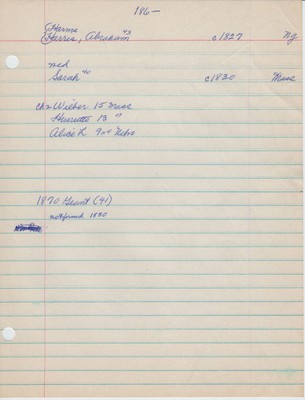 186—
Harms
Harris, Abraham 43 c1827 NJ
md
Sarah 40 c1830 Mass
chn Wilber 15 Mass
Henrietta 13 "
Alice L 9
1870 Grant (41)
not found 1880